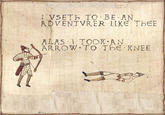 I VSETH TO BE AN
ADVENTVRER LIKE THEE
ALAS I TOOK AN
ARROW TO THE KNEE